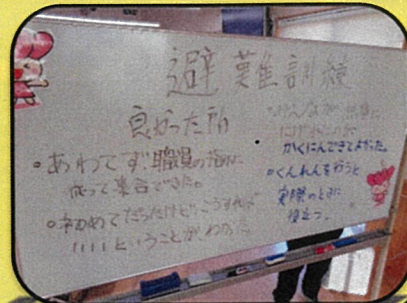 避難訓練
良かった所
・あわてず、職員の指示に
従って集合できた。
・初めてだったけど、こうすれば
いいということがわかっ
・みんなが
にげ
かくにんできてよかった。
・くんれんを行うと
実際のときに
役立つ。